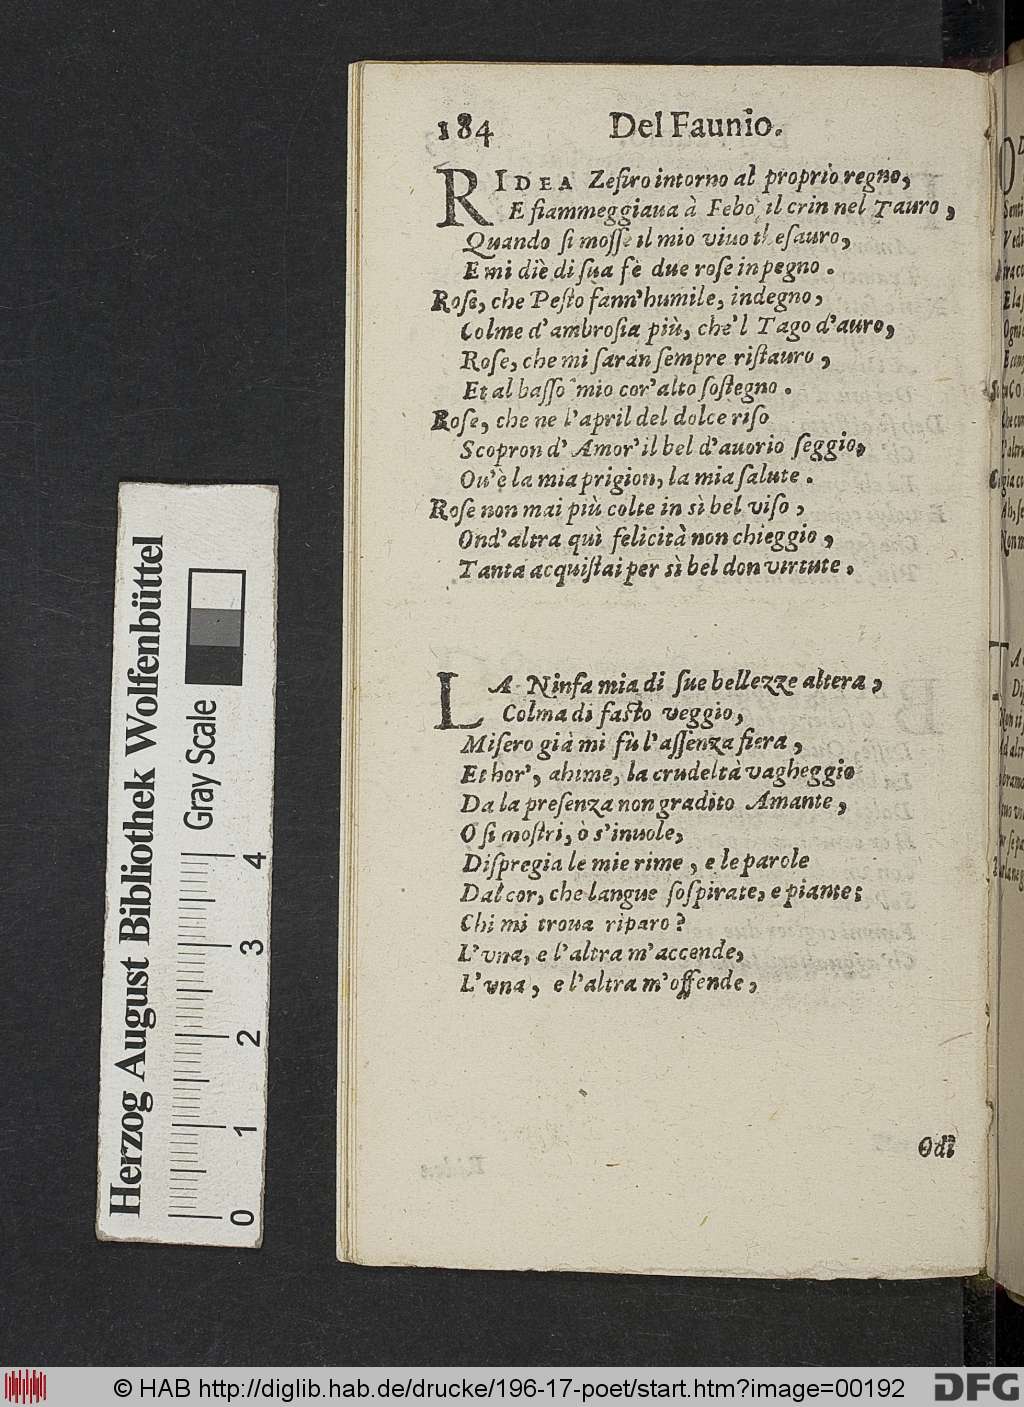 184 Del Faunio.
RIDEA Zefiro intorno al proprio regno,
E fiammeggiaua à Febo il crin nel Tauro,
Quando ſi moſſe il mio viuo theſauro,
E mi diè di ſua fè due roſe in pegno.
Roſe, che Peſto fann'humile, indegno,
Colme d'ambroſia più, che'l Tago d'auro,
Roſe, che mi ſaran ſempre riſtauro,
Et al baſſo mio cor'alto ſoſtegno.
Roſe, che ne l'april del dolce riſo
Scopron d'Amor'il bel d'auorio ſeggio,
Ou'è la mia prigion, la mia ſalute.
Roſe non mai più colte in sì bel viſo,
Ond'altra quì felicità non chieggio,
Tanta acquiſtai per sì bel don virtute.
LA Ninfa mia di ſue bellezze altera,
Colma di faſto veggio,
Miſero già mi fù l'aſſenza fiera,
Et hor', ahime, la crudeltà vagheggio
Da la preſenza non gradito Amante,
O ſi moſtri, ò s'inuole,
Diſpregia le mie rime, e le parole
Dal cor, che langue ſoſpirate, e piante:
Chi mi troua riparo?
L'vna, e l'altra m'accende,
L'vna, e l'altra m'offende,
Odi
Herzog August Bibliothek Wolfenbüttel
Gray Scale
0 1 2 3 4
© HAB http://diglib.hab.de/drucke/196-17-poet/start.htm?image=00192
DFG